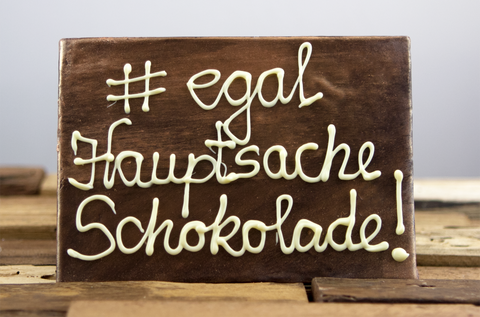 # egal
Hauptsache
Schokolade!